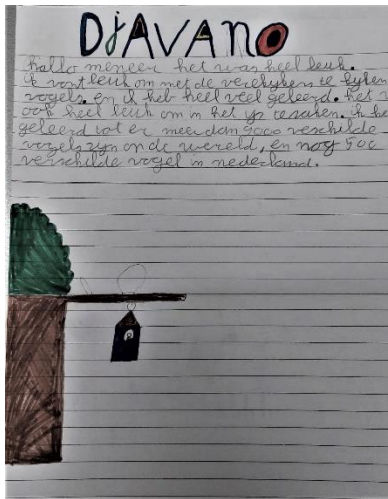 DjAVANO
hallo meneer het was heel leuk.
ik vont leuk om met de verekykers te kyken
vogels. en ik heb heel veel geleerd. het
ook heel leuk om in het ys te
geleerd dat er meer dan 9000 verschilde
vogels zyn on de wereld, en nog 500
verschilde vogel in nederland.